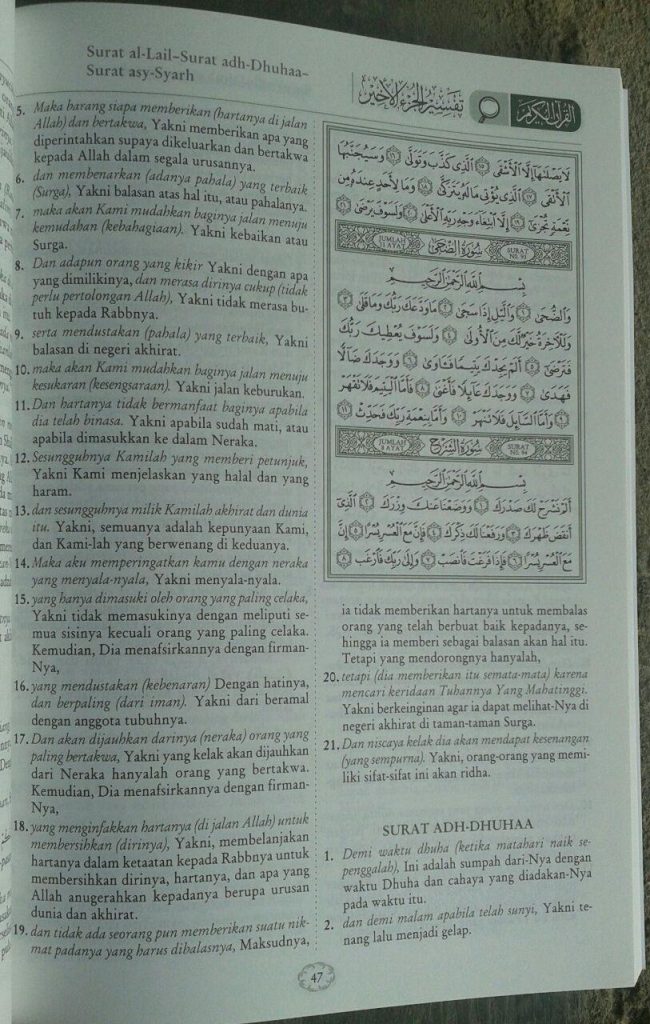 Surat al-Lail–Surat adh-Dhuhaa–
Surat asy-Syarh
تفسير الجزء الأخير
القرآن الكريم
5. Maka barang siapa memberikan (hartanya di jalan
Allah) dan bertakwa, Yakni memberikan apa yang
diperintahkan supaya dikeluarkan dan bertakwa
kepada Allah dalam segala urusannya.
6. dan membenarkan (adanya pahala) yang terbaik
(Surga), Yakni balasan atas hal itu, atau pahalanya.
7. maka akan Kami mudahkan baginya jalan menuju
kemudahan (kebahagiaan). Yakni kebaikan atau
Surga.
8. Dan adapun orang yang kikir Yakni dengan apa
yang dimilikinya, dan merasa dirinya cukup (tidak
perlu pertolongan Allah), Yakni tidak merasa bu-
tuh kepada Rabbnya.
9. serta mendustakan (pahala) yang terbaik, Yakni
balasan di negeri akhirat.
10. maka akan Kami mudahkan baginya jalan menuju
kesukaran (kesengsaraan). Yakni jalan keburukan.
11. Dan hartanya tidak bermanfaat baginya apabila
dia telah binasa. Yakni apabila sudah mati, atau
apabila dimasukkan ke dalam Neraka.
12. Sesungguhnya Kamilah yang memberi petunjuk,
Yakni Kami menjelaskan yang halal dan yang
haram.
13. dan sesungguhnya milik Kamilah akhirat dan dunia
itu. Yakni, semuanya adalah kepunyaan Kami,
dan Kami-lah yang berwenang di keduanya.
14. Maka aku memperingatkan kamu dengan neraka
yang menyala-nyala, Yakni menyala-nyala.
15. yang hanya dimasuki oleh orang yang paling celaka,
Yakni tidak memasukinya dengan meliputi se-
mua sisinya kecuali orang yang paling celaka.
Kemudian, Dia menafsirkannya dengan firman-
Nya,
16. yang mendustakan (kebenaran) Dengan hatinya,
dan berpaling (dari iman). Yakni dari beramal
dengan anggota tubuhnya.
17. Dan akan dijauhkan darinya (neraka) orang yang
paling bertakwa, Yakni yang kelak akan dijauhkan
dari Neraka hanyalah orang yang bertakwa.
Kemudian, Dia menafsirkannya dengan firman-
Nya,
18. yang menginfakkan hartanya (di jalan Allah) untuk
membersihkan (dirinya), Yakni, membelanjakan
hartanya dalam ketaatan kepada Rabbnya untuk
membersihkan dirinya, hartanya, dan apa yang
Allah anugerahkan kepadanya berupa urusan
dunia dan akhirat.
19. dan tidak ada seorang pun memberikan suatu nik-
mat padanya yang harus dibalasnya, Maksudnya,
لَا يَصْلَاهَا إِلَّا الْأَشْقَى ١٥ الَّذِي كَذَّبَ وَتَوَلَّى ١٦ وَسَيُجَنَّبُهَا
الْأَتْقَى ١٧ الَّذِي يُؤْتِي مَالَهُ يَتَزَكَّى ١٨ وَمَا لِأَحَدٍ عِندَهُ مِن
نِّعْمَةٍ تُجْزَى ١٩ إِلَّا ابْتِغَاءَ وَجْهِ رَبِّهِ الْأَعْلَى ٢٠ وَلَسَوْفَ يَرْضَى ٢١
JUMLAH 11 AYAT سُورَةُ الضُّحَى SURAT NO. 93
بِسْمِ اللَّهِ الرَّحْمَنِ الرَّحِيمِ
وَالضُّحَى ١ وَاللَّيْلِ إِذَا سَجَى ٢ مَا وَدَّعَكَ رَبُّكَ وَمَا قَلَى ٣
وَلَلْآخِرَةُ خَيْرٌ لَّكَ مِنَ الْأُولَى ٤ وَلَسَوْفَ يُعْطِيكَ رَبُّكَ
فَتَرْضَى ٥ أَلَمْ يَجِدْكَ يَتِيمًا فَآوَى ٦ وَوَجَدَكَ ضَالًّا
فَهَدَى ٧ وَوَجَدَكَ عَائِلًا فَأَغْنَى ٨ فَأَمَّا الْيَتِيمَ فَلَا تَقْهَرْ
٩ وَأَمَّا السَّائِلَ فَلَا تَنْهَرْ ١٠ وَأَمَّا بِنِعْمَةِ رَبِّكَ فَحَدِّثْ ١١
JUMLAH 8 AYAT سُورَةُ الشَّرْحِ SURAT NO. 94
بِسْمِ اللَّهِ الرَّحْمَنِ الرَّحِيمِ
أَلَمْ نَشْرَحْ لَكَ صَدْرَكَ ١ وَوَضَعْنَا عَنكَ وِزْرَكَ ٢ الَّذِي
أَنقَضَ ظَهْرَكَ ٣ وَرَفَعْنَا لَكَ ذِكْرَكَ ٤ فَإِنَّ مَعَ الْعُسْرِ يُسْرًا ٥ إِنَّ
مَعَ الْعُسْرِ يُسْرًا ٦ فَإِذَا فَرَغْتَ فَانصَبْ ٧ وَإِلَى رَبِّكَ فَارْغَب ٨
ia tidak memberikan hartanya untuk membalas
orang yang telah berbuat baik kepadanya, se-
hingga ia memberi sebagai balasan akan hal itu.
Tetapi yang mendorongnya hanyalah,
20. tetapi (dia memberikan itu semata-mata) karena
mencari keridaan Tuhannya Yang Mahatinggi.
Yakni berkeinginan agar ia dapat melihat-Nya di
negeri akhirat di taman-taman Surga.
21. Dan niscaya kelak dia akan mendapat kesenangan
(yang sempurna). Yakni, orang-orang yang memi-
liki sifat-sifat ini akan ridha.
SURAT ADH-DHUHAA
1. Demi waktu dhuha (ketika matahari naik se-
penggalah), Ini adalah sumpah dari-Nya dengan
waktu Dhuha dan cahaya yang diadakan-Nya
pada waktu itu.
2. dan demi malam apabila telah sunyi, Yakni te-
nang lalu menjadi gelap.
47